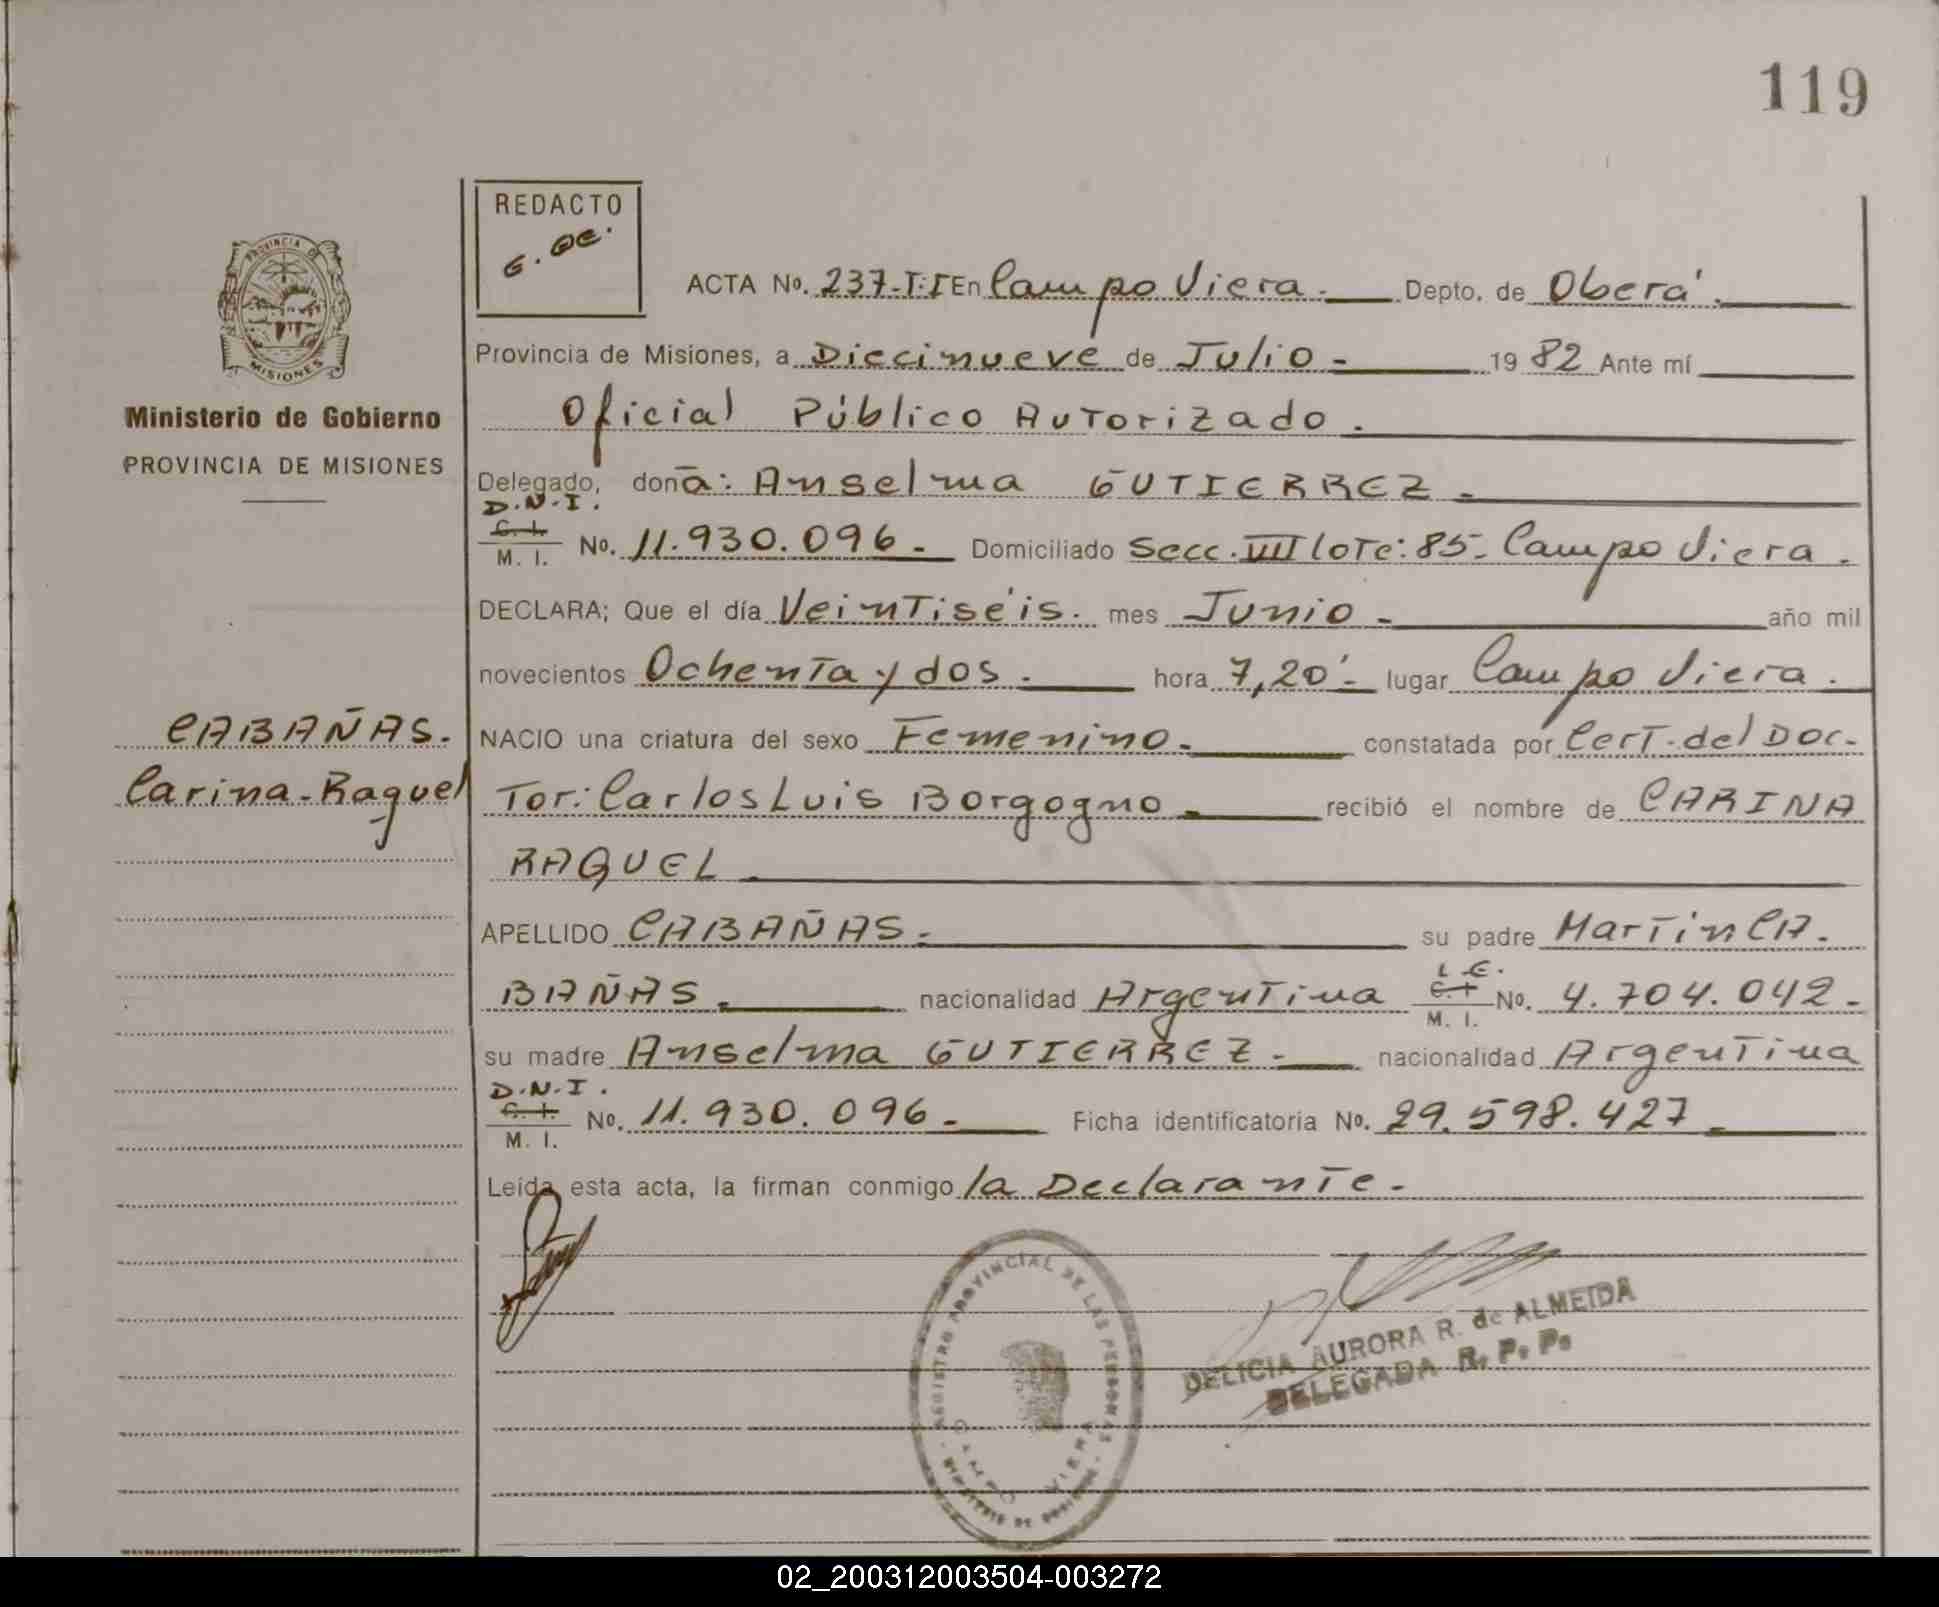 119
REDACTO
G. Ge.
PROVINCIA DE
MISIONES
Ministerio de Gobierno
PROVINCIA DE MISIONES
CABAÑAS.
Carina-Raquel
ACTA No. 237-T:I En Campo Viera. Depto. de Oberá.
Provincia de Misiones, a Diecinueve de Julio - 1982 Ante mí
Oficial Público Autorizado.
Delegado, doña: Anselma GUTIERREZ -
D.N.I.
C. I.
M. I. No. 11.930.096. Domiciliado Secc. VIII lote: 85- Campo Viera.
DECLARA; Que el día Veintiséis. mes Junio - año mil
novecientos Ochenta y dos. hora 7,20'- lugar Campo Viera.
NACIO una criatura del sexo Femenino. constatada por Cert. del Doc-
tor: Carlos Luis Borgogno recibió el nombre de CARINA
RAQUEL
APELLIDO CABAÑAS. su padre Martin CA-
BAÑAS. nacionalidad Argentina L.E. C. I M. I. No. 4.704.042-
su madre Anselma GUTIERREZ - nacionalidad Argentina
D.N.I.
C. I.
M. I. No. 11.930.096. Ficha identificatoria No. 29.598.427
Leída esta acta, la firman conmigo la Declarante.
REGISTRO PROVINCIAL DE LAS PERSONAS
MINISTERIO DE GOBIERNO
CAMPO VIERA
DELICIA AURORA R. de ALMEIDA
DELEGADA R. P. P.
02_200312003504-003272